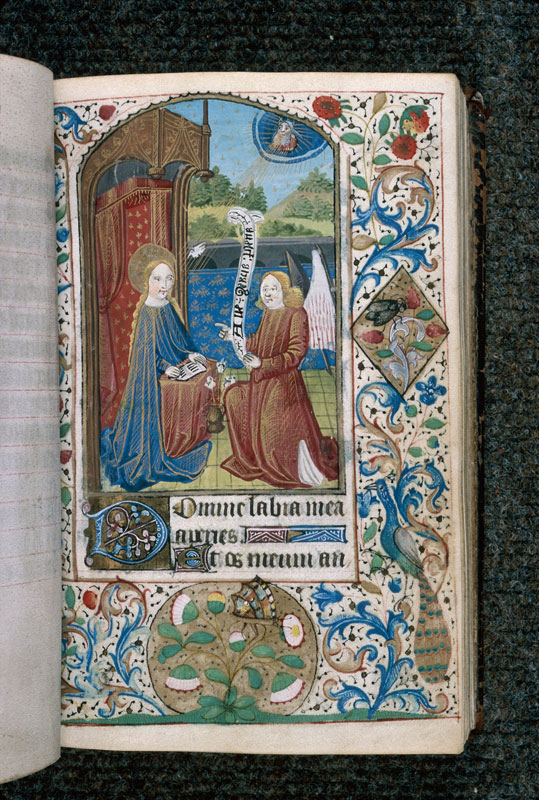 Aue gracia plena
Domine labia mea
aperies
Et os meum an